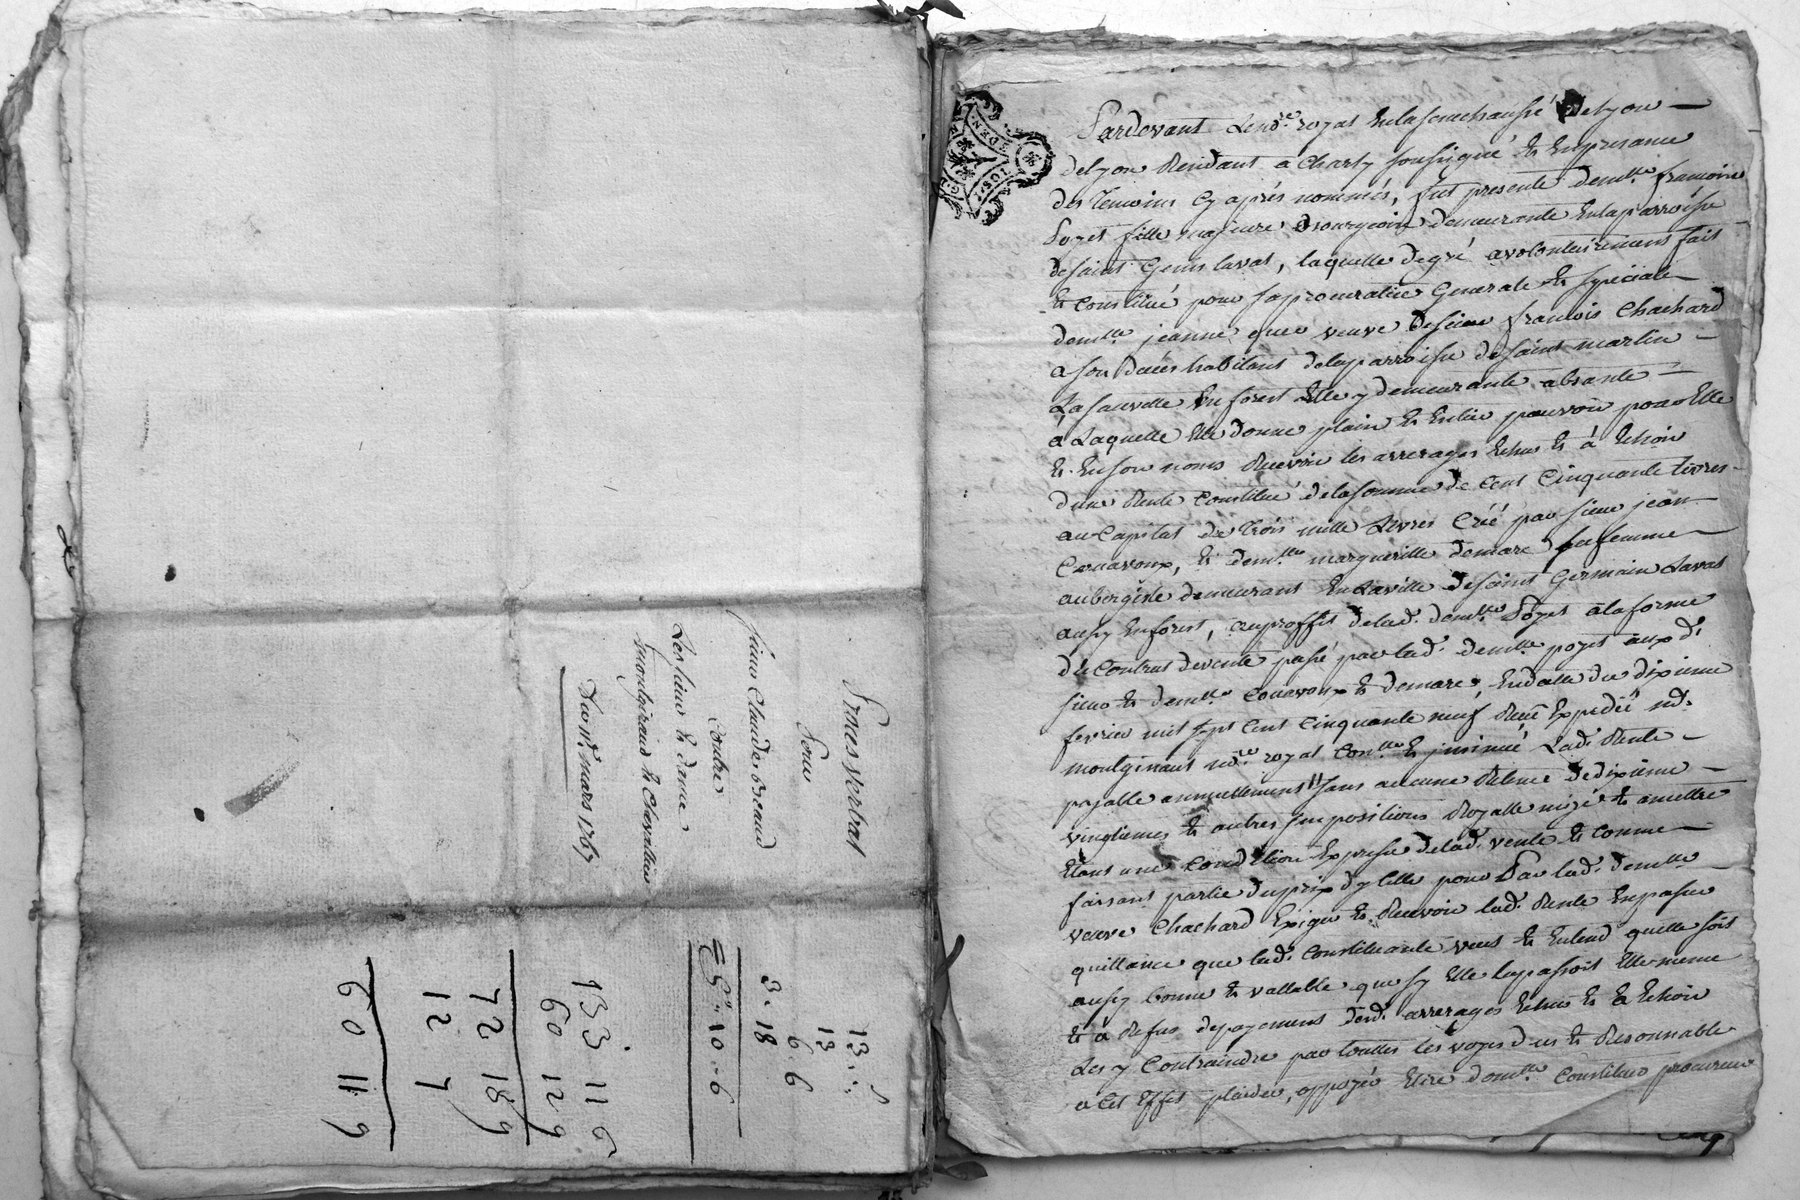 Proces verbal
Pour
sieur Claude breaud
Contre
Les sieur et dame
montgiraud et Chevallier
Du 11e. mars 1767
13..
13
6 6
3. 18
10..6
133 11 6
60 12 9
72 18 9
12 7
60 11 9
Pardevant Le nore. royal En la senechaussé de Lyon
de Lyon Residant a Charly soussigné et En presance
des Temoins Cy après nommés, fut presente demlle. francoise
Pozet fille majeure Bourgeoise demeurante En la parroisse
de saint Genis laval, laquelle de gré a volontairement fait
et Constitué pour sa procuratrice Generale et speciale
demlle. jeanne veuve de sieur francois Chachard
a son deces habitant de la parroisse de saint martin
La sauvetté En forest Elle y demeurante absante
à Laquelle Elle donne plain et Entier pouvoir pour Elle
et En son nom Recevoir les arrerages Echus et à Echoir
d'une Rente Constitué de la somme de Cent Cinquante livres
au Capital de Trois mille Livres Créé par sieur jean
Couavoux, et demlle. margueritte demare sa femme
aubergiste demeurant En La ville de saint Germain Laval
aussy En forest, au proffit de lad. demlle. Pozet a la forme
du Contrat de vente passé par lad. demlle. pozet aux d.
sieur et demlle. Couavoux et demare, En datte du dixieme
fevrier mil sept Cent Cinquante neuf Receu Expedié
nore. royal Lad. Rente
payable annuellement sans aucune Retenue de dixieme
vingtiemes et autres Impositions Royalle mizé et a mettre
Etant une Condition Expresse de lad. vente et Comme
faisant partie du prix d'ycelle pour Par lad. demlle.
veuve Chachard Exiger et Recevoir lad. Rente En passer
quittance que lad. Constituante veut et Entend quelle soit
aussy bonne et vallable que sy Elle la passoit Elle meme
et à Refus de payement desd. arrerages Echus et à Echoir
Les y Contraindre par touttes les voyes dues et Resonnable
a Cet Effet plaider, oppozer Elire domlle. Constituer procureur